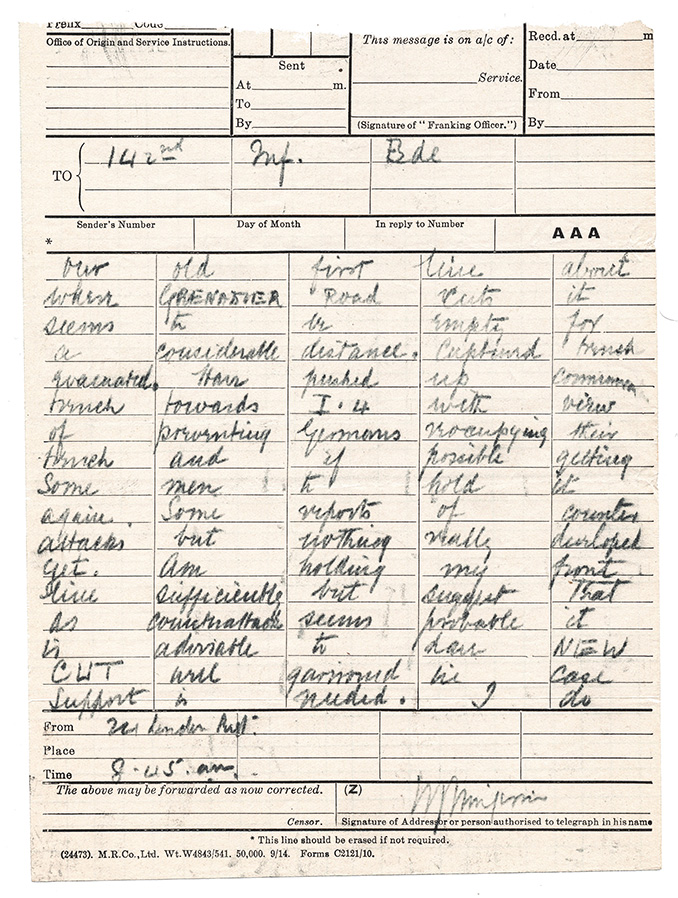 Prefix Code
Office of Origin and Service Instructions.
Sent
At m.
To
By
This message is on a/c of:
Service.
(Signature of "Franking Officer.")
Recd. at m
Date
From
By
TO 142nd Inf. Bde
Sender's Number Day of Month In reply to Number AAA
*
our old first line about
where GRENADIER Road cuts it
seems to be empty for
a considerable distance. Captured trench
evacuated. Have pushed up
trench towards I.4 with view
of preventing Germans reoccupying their
trench and if possible getting
some men to hold it
again. Some reports of counter
attacks but nothing really developed
yet. Am holding my front
line sufficiently but suggest that
as counterattack seems probable it
is advisable to have NEW
CUT well garrisoned in case
support is needed. I do
From London Regt.
Place
Time 8.45 am.
The above may be forwarded as now corrected. (Z)
Censor. Signature of Addressor or person authorised to telegraph in his name
* This line should be erased if not required.
(24473). M.R.Co.,Ltd. Wt.W4843/541. 50,000. 9/14. Forms C2121/10.